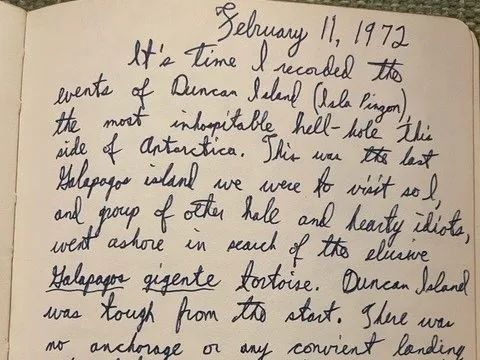 February 11, 1972
It's time I recorded the
events of Duncan Island (Isla Pinzon),
the most inhospitable hell-hole this
side of Antarctica. This was the last
Galapagos island we were to visit so I,
and group of other hale and hearty idiots,
went ashore in search of the elusive
Galapagos gigente tortoise. Duncan Island
was tough from the start. There was
no anchorage or any convient landing